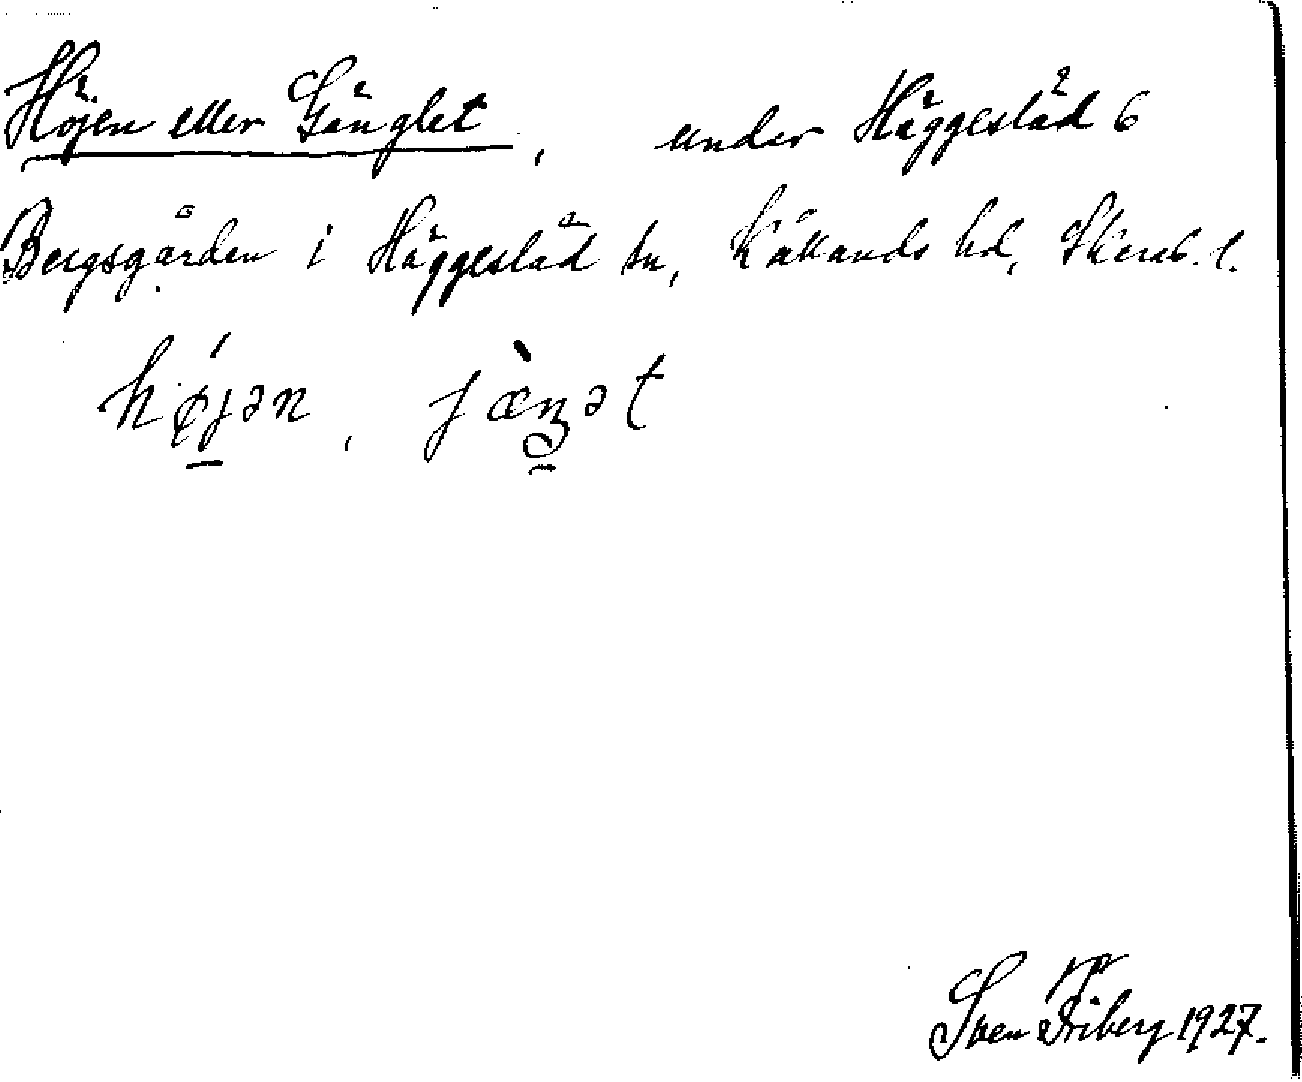 Höjen eller Gänglet, under Häggeslåd 6
Bergsgården i Häggeslåd sn, Kållands hd, Skarab. l.
hǿjən,
Sven Friberg 1927.